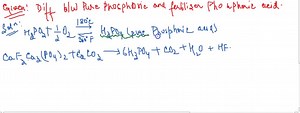 Question: Diff b/w Pure Phosphoric and fertilizer Phosphoric acid.
Soln: H₃PO₃ + 1/2 O₂ 180°C H₃PO₄ (pure Phosphoric acid)
CaF₂Ca₃(PO₄)₂ + CaCO₃ → 6H₃PO₄ + CO₂ + H₂O + HF.